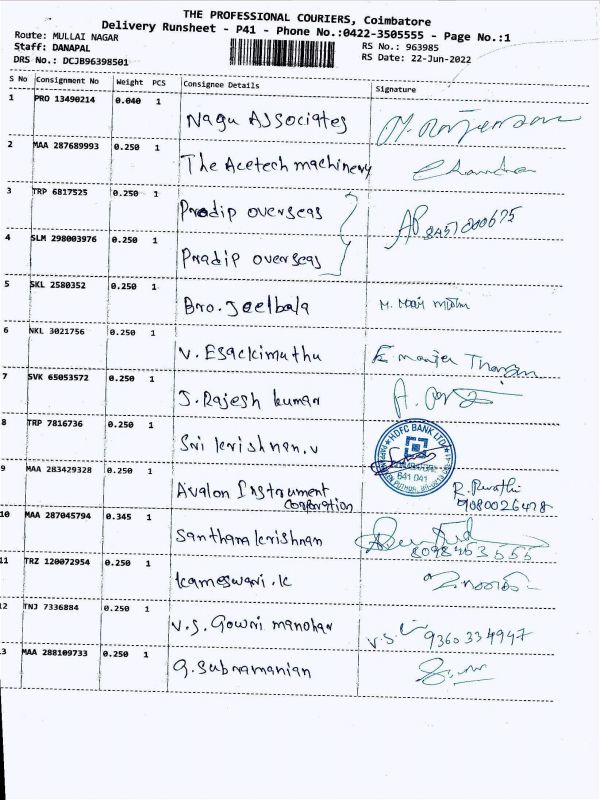 THE PROFESSIONAL COURIERS, Coimbatore
Delivery Runsheet - P41 - Phone No.:0422-3505555 - Page No.:1
Route: MULLAI NAGAR
Staff: DANAPAL RS No.: 963985
DRS No.: DCJB96398501 RS Date: 22-Jun-2022
S No Consignment No Weight PCS Consignee Details Signature
1 PRO 13490214 0.040 1 Nagu Associates
2 MAA 287689993 0.250 1 The Acetech machinery Chandra
3 TRP 6817525 0.250 1 Pradip overseas
4 SLM 298003976 0.250 1 Pradip overseas
5 SKL 2580352 0.250 1 Bro. Joelbala
6 NKL 3021756 0.250 1 V. Esackimuthu
7 SVK 65053572 0.250 1 J. Rajesh kumar
8 TRP 7816736 0.250 1 Sri krishnan.v
HDFC BANK LTD
641 041
9 MAA 283429328 0.250 1 Avalon Instrument
corporation
9080026478
10 MAA 287045794 0.345 1 Santhana krishnan
8098463555
11 TRZ 120072954 0.250 1 kameswari.k
12 TNJ 7336884 0.250 1 V.S. Gowri manohar V.S. 9360334947
13 MAA 288109733 0.250 1 G. Subramanian